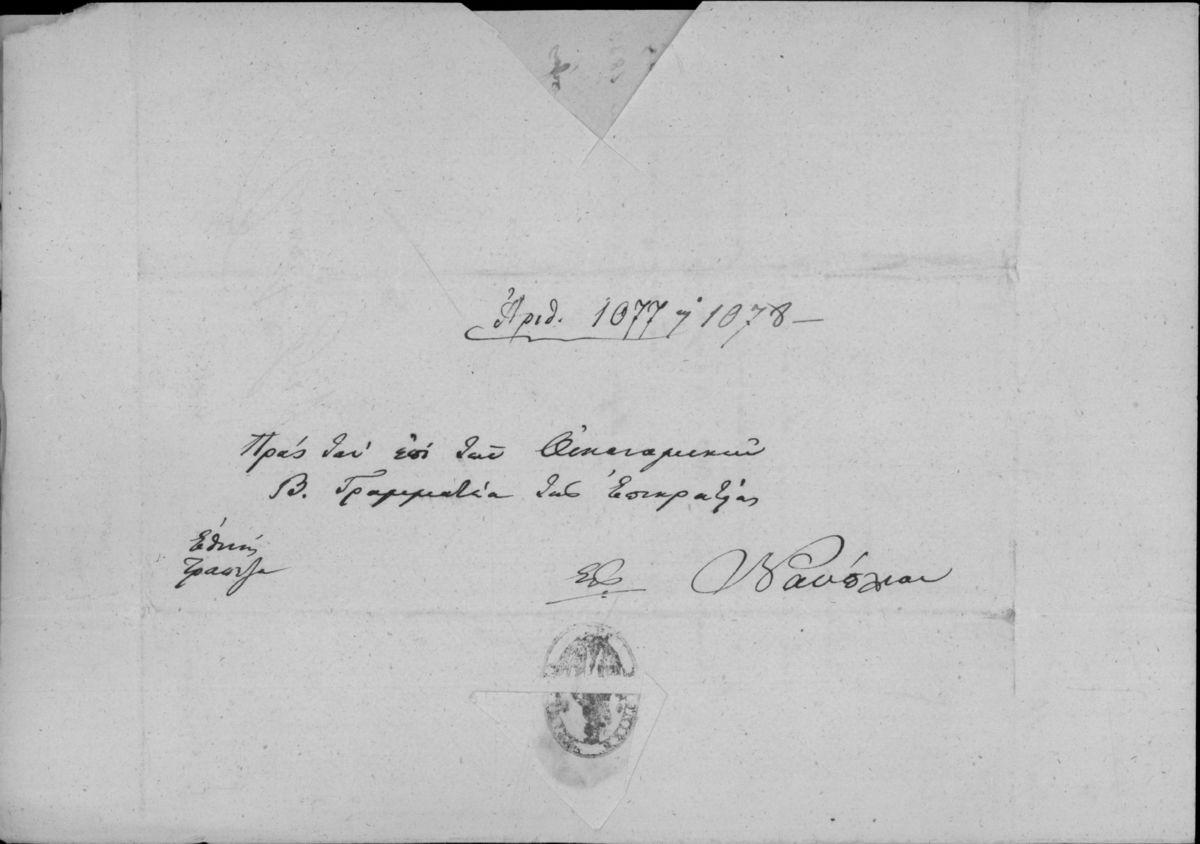 Ἀριθ. 1077 ἢ 1078 —
Πρὸς τὴν ἐπὶ τῶν Οἰκονομικῶν
Β. Γραμματεία τῆς Ἐπικρατείας
Ἐθνική
Τράπεζα
Εἰς Ναύπλιον